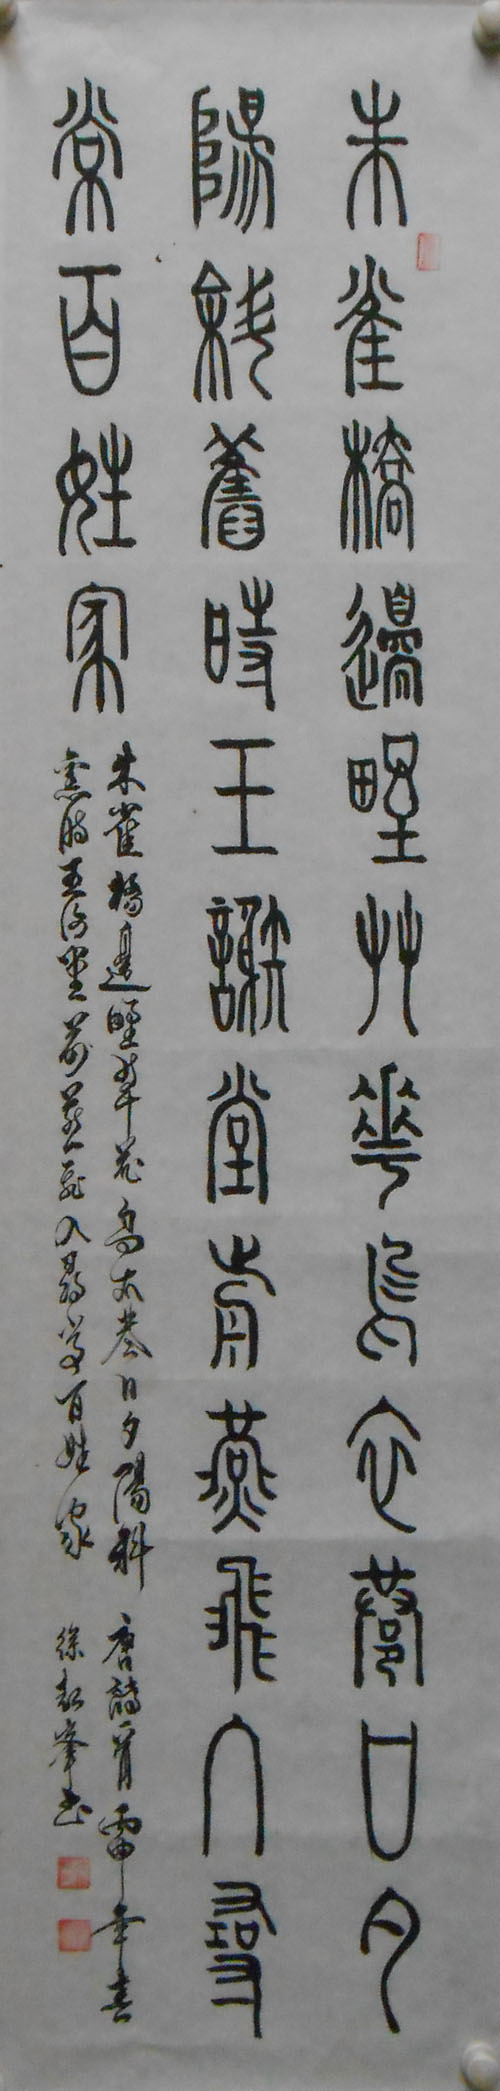 朱雀橋邊野艸華烏衣巷口夕
陽斜舊時王謝堂前燕飛入尋
常百姓家
朱雀橋邊野草花烏衣巷口夕陽斜 唐詩一首 年春
舊時王謝堂前燕飛入尋常百姓家 徐峯書